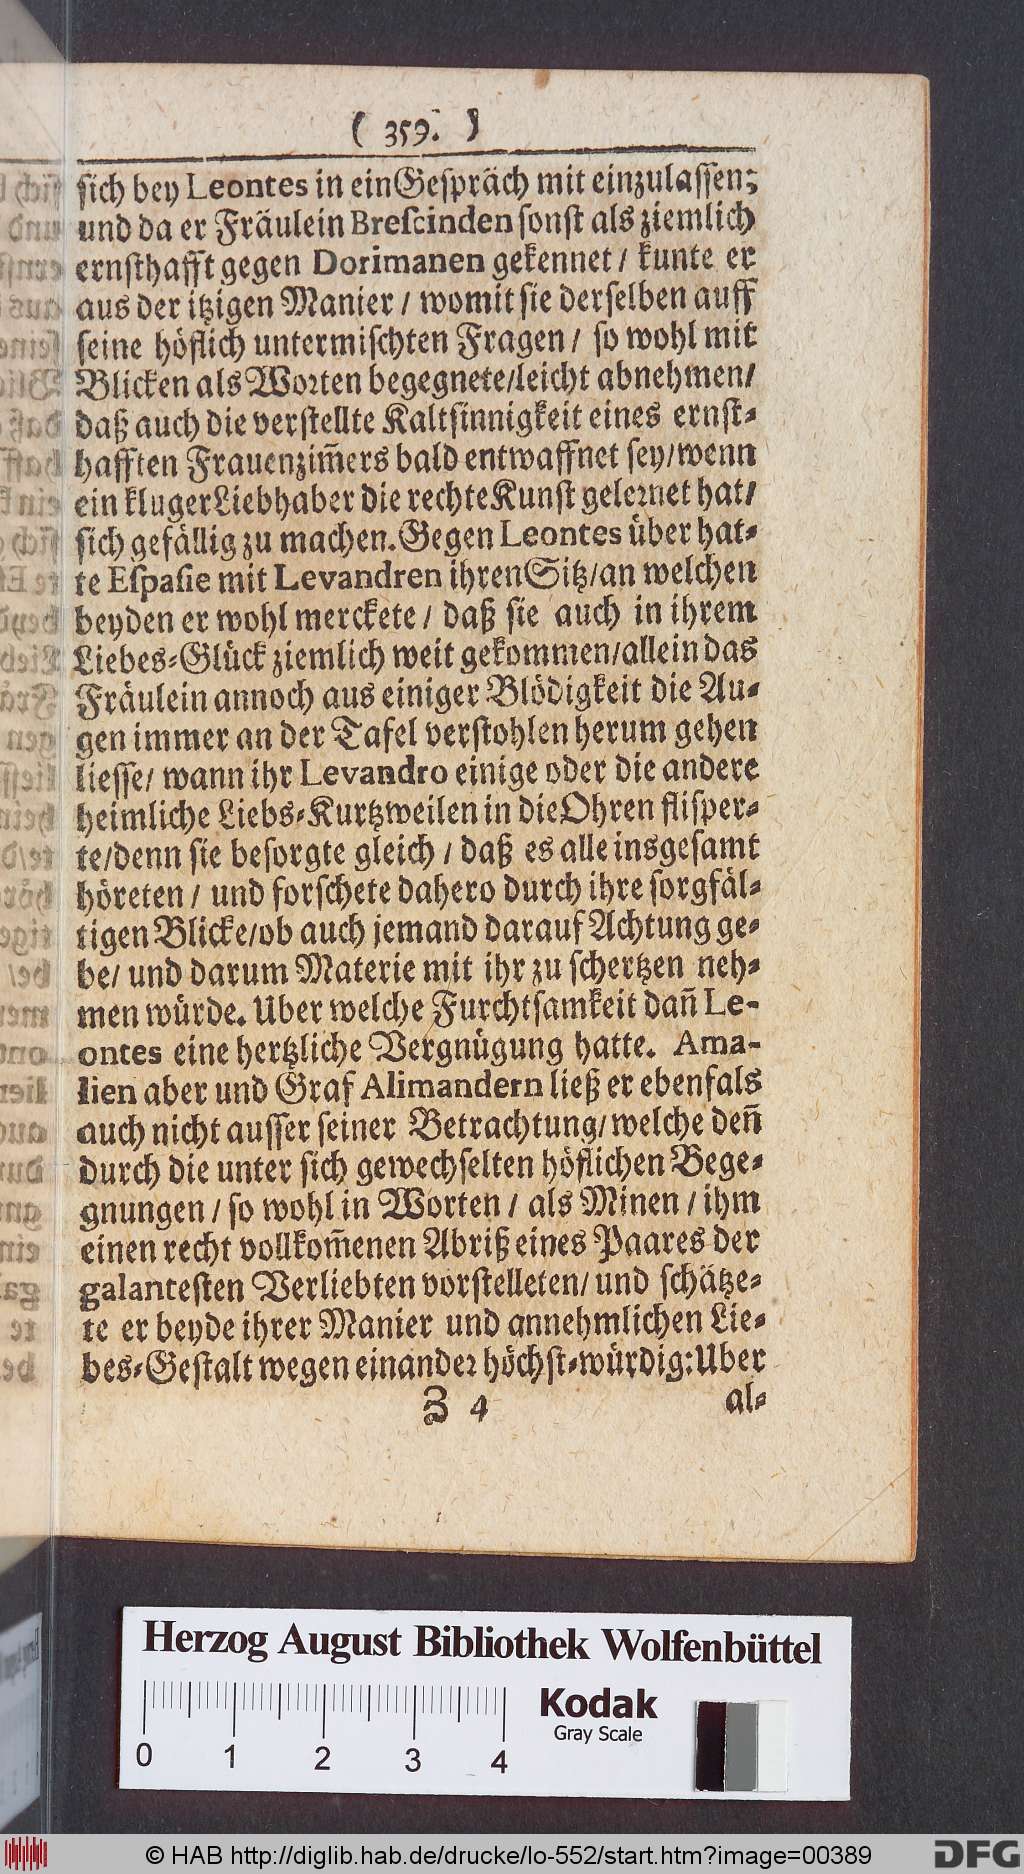 ( 359. )
sich bey Leontes in ein Gespräch mit einzulassen;
und da er Fräulein Brescinden sonst als ziemlich
ernsthafft gegen Dorimanen gekennet / kunte er
aus der itzigen Manier / womit sie derselben auff
seine höflich untermischten Fragen / so wohl mit
Blicken als Worten begegnete/leicht abnehmen/
daß auch die verstellte Kaltsinnigkeit eines ernst-
hafften Frauenzim̃ers bald entwaffnet sey/wenn
ein kluger Liebhaber die rechte Kunst gelernet hat/
sich gefällig zu machen. Gegen Leontes über hat-
te Espasie mit Levandren ihren Sitz/an welchen
beyden er wohl merckete / daß sie auch in ihrem
Liebes-Glück ziemlich weit gekommen/allein das
Fräulein annoch aus einiger Blödigkeit die Au-
gen immer an der Tafel verstohlen herum gehen
liesse/ wann ihr Levandro einige oder die andere
heimliche Liebs-Kurtzweilen in die Ohren flisper-
te/denn sie besorgte gleich / daß es alle insgesamt
höreten / und forschete dahero durch ihre sorgfäl-
tigen Blicke/ob auch jemand darauf Achtung ge-
be/ und darum Materie mit ihr zu schertzen neh-
men würde. Uber welche Furchtsamkeit dañ Le-
ontes eine hertzliche Vergnügung hatte. Ama-
lien aber und Graf Alimandern ließ er ebenfals
auch nicht ausser seiner Betrachtung/ welche deñ
durch die unter sich gewechselten höflichen Bege-
gnungen / so wohl in Worten / als Minen / ihm
einen recht vollkom̃enen Abriß eines Paares der
galantesten Verliebten vorstelleten/ und schätze-
te er beyde ihrer Manier und annehmlichen Lie-
bes-Gestalt wegen einander höchst-würdig: Uber
Z 4
al-
Herzog August Bibliothek Wolfenbüttel
Kodak
Gray Scale
0 1 2 3 4
© HAB http://diglib.hab.de/drucke/lo-552/start.htm?image=00389
DFG